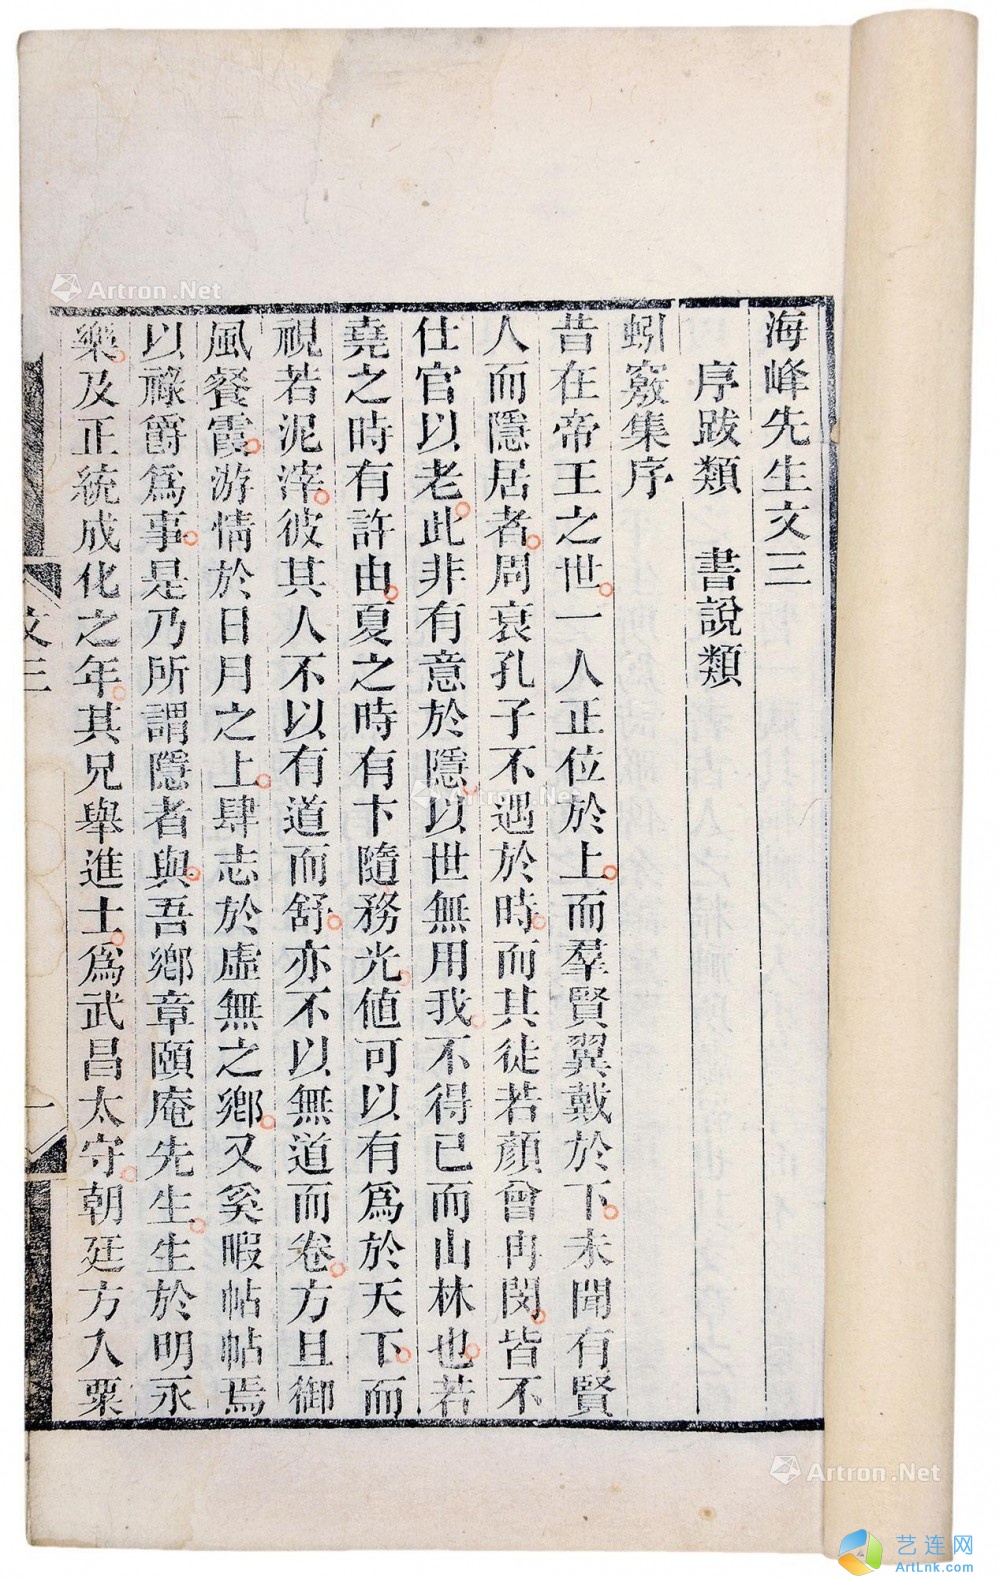 海峰先生文三
序跋類　書說類
蚓竅集序
昔在帝王之世一人正位於上而羣賢翼戴於下未聞有賢
人而隱居者周衰孔子不遇於時而其徒若顏曾冉閔皆不
仕官以老此非有意於隱以世無用我不得已而山林也若
堯之時有許由夏之時有卞隨務光値可以有爲於天下而
視若泥滓彼其人不以有道而舒亦不以無道而卷方且御
風餐霞游情於日月之上肆志於虛無之鄉又奚暇帖帖焉
以祿爵爲事是乃所謂隱者與吾鄉章頤庵先生生於明永
樂及正統成化之年其兄舉進士爲武昌太守朝廷方入粟
文三
一
Artron.Net
Artron.Net
Artron.Net
艺连网
ArtLnk.com